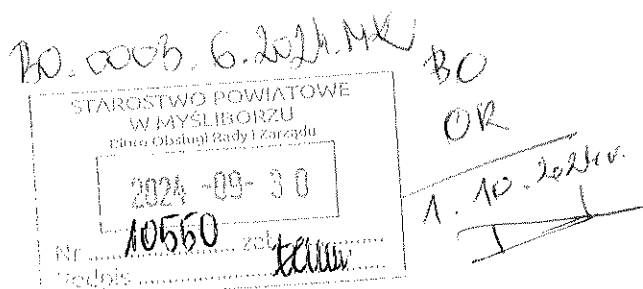 BO.0003.6.2024.MK
BO
OR
STAROSTWO POWIATOWE
W MYŚLIBORZU
Biuro Obsługi Rady i Zarządu
2024 -09- 30
1. 10. 2024 r.
Nr ..... 10550 ..... zał. .....
Podpis .....